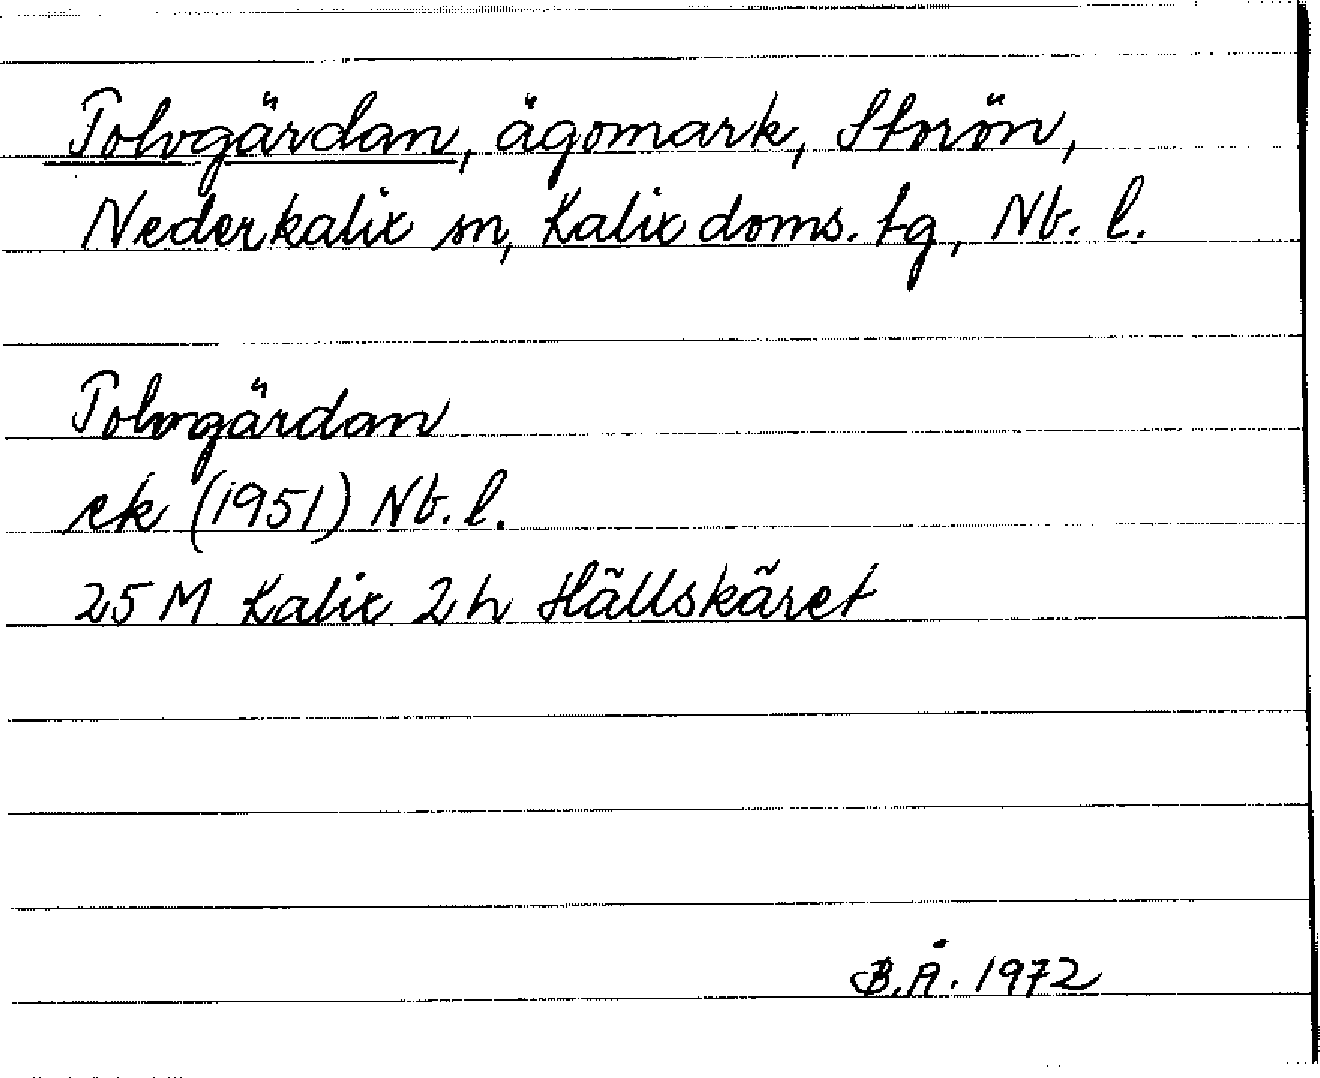 Tolvgärdan, ägomark, Storön,
Nederkalix sn, Kalix doms. tg, Nb. l.
Tolvgärdan
ek (1951) Nb. l.
25 M Kalix 2 h Hällskäret
B.Å. 1972